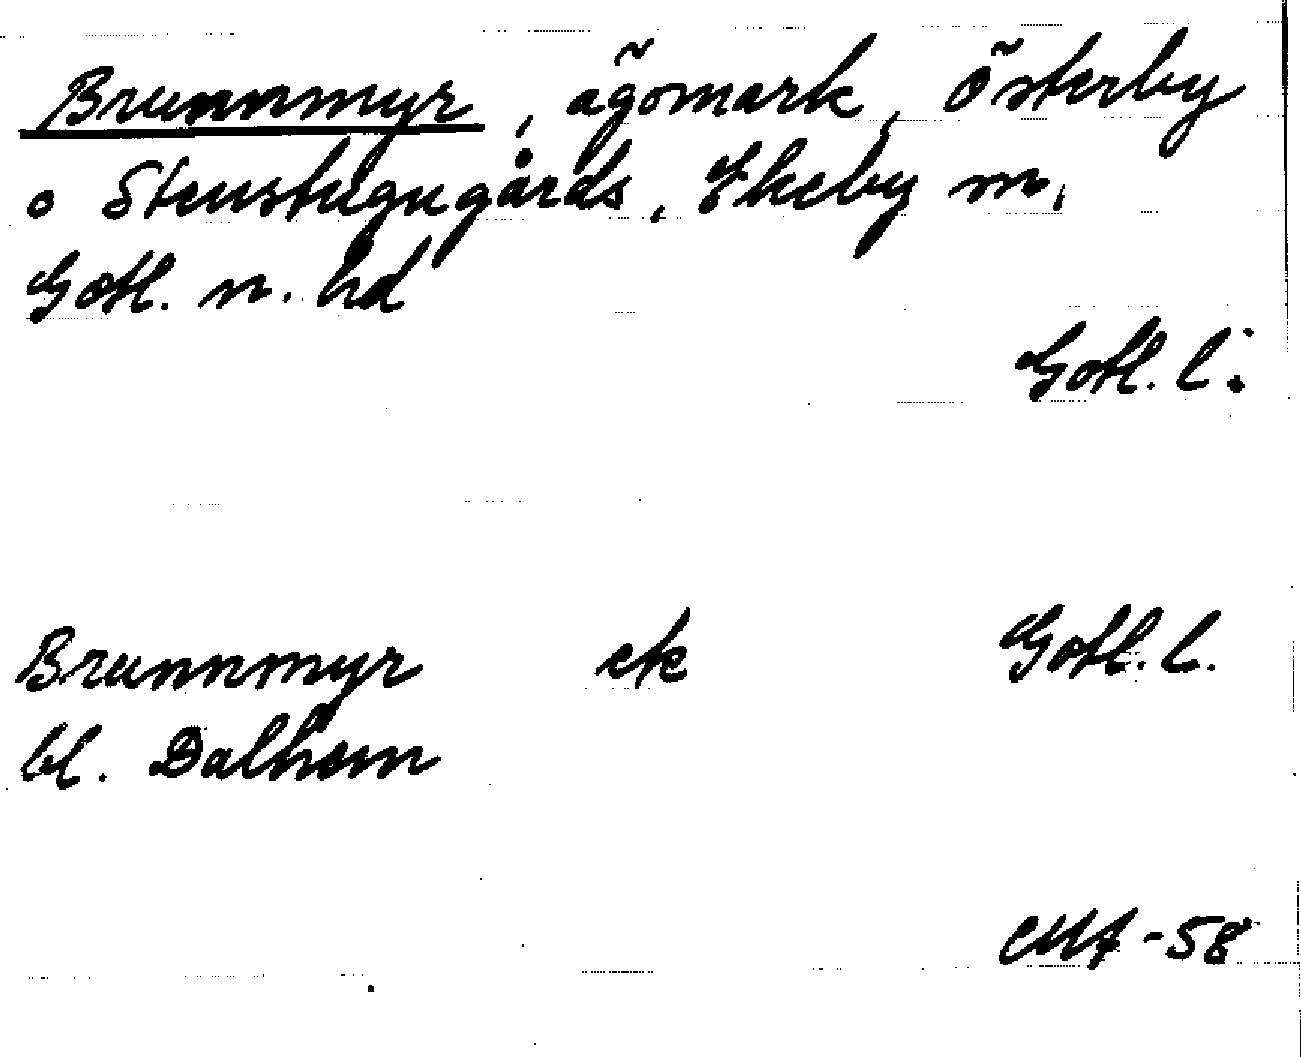 Brunnmyr, ägomark, Österby
o Stenstugugårds, Ekeby sn,
Gotl. n. hd
Gotl. l:
Brunnmyr ek Gotl. l.
bl. Dalhem
CMA -58